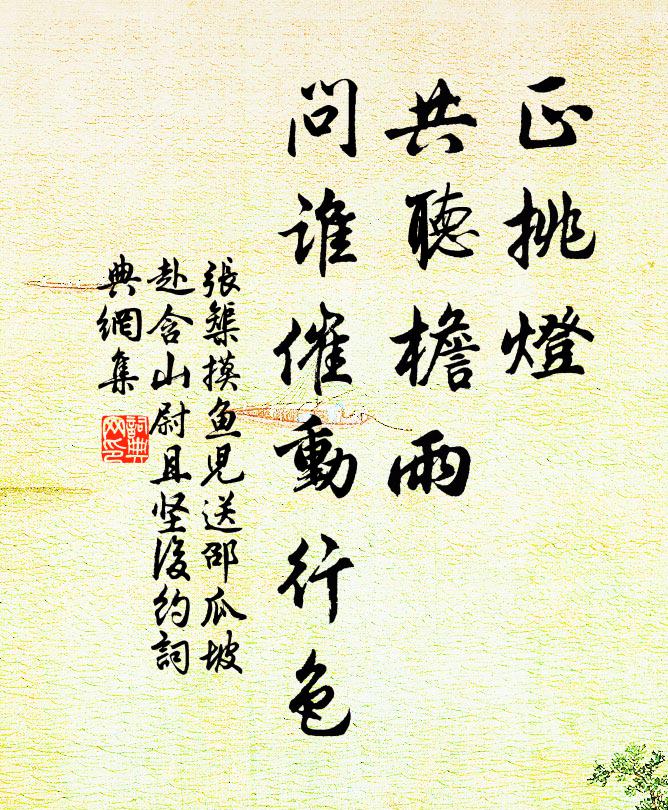 正挑燈
共聽檐雨
問誰催動行色
張榘摸魚兒送邵瓜坡
赴含山尉且坚後約詞
典網集
詞典
网印